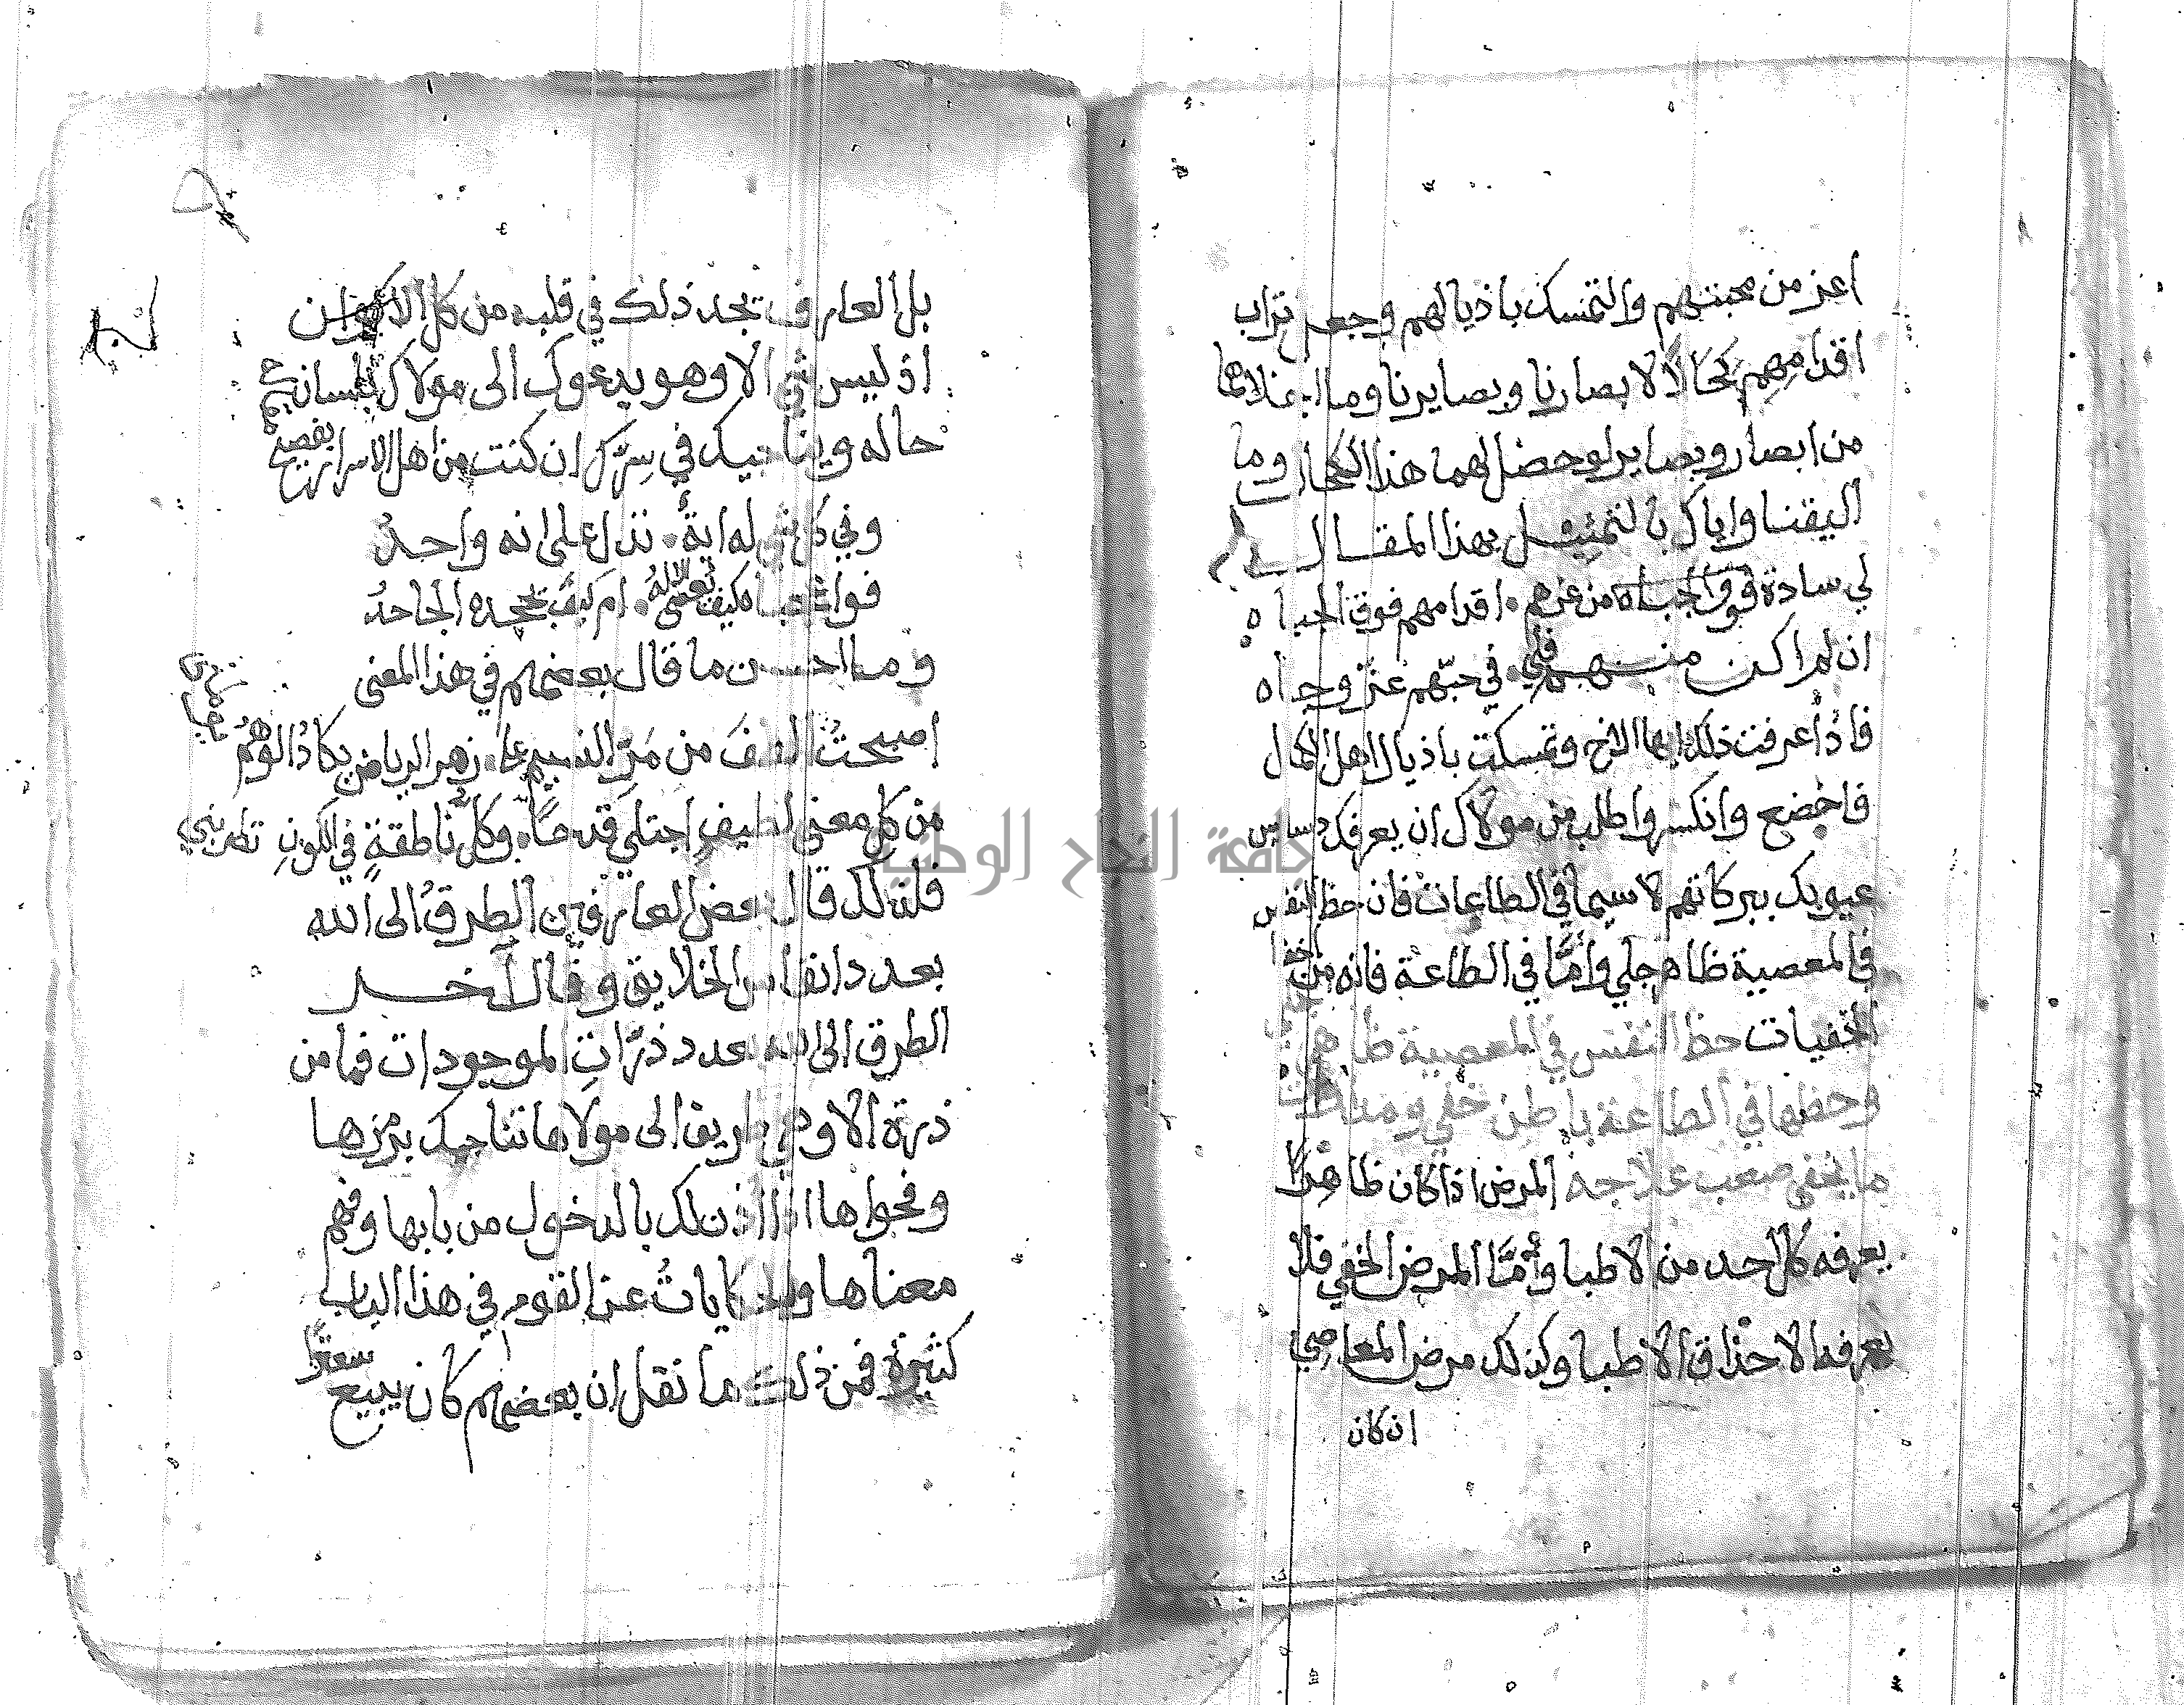 اعز من محبتهم والتمسك باذيالهم وجعل تراب
اقدامهم كحالا لابصارنا وبصايرنا وما اغلاهما
من ابصار وبصاير لو حضل لهما هذا الكحال وما
اليقنا واياك بالتمثيل بهذا المقال
لي سادة من عزهم . اقدامهم فوق الجباه
ان لم اكن منهم فلي . في حبهم عز وجاه
فاذا عرفت ذلك ايها الاخ وتمسكت باذيال اهل الكمال
فاخضع وانكسر واطلب من مولاك ان يعرفك دسايس
عيوبك ببركاتهم لا سيما في الطاعات فان حظ النفس
في المعصية ظاهر جلي واما في الطاعة فانه من اخفا
الخفيات حظ النفس في المعصية ظاهر
وحظها في الطاعة باطن خفي ومداواة
ما يخفى صعب علاجه المرض اذا كان ظاهرا
يعرفه كل احد من الاطبا واما المرض الخفي فلا
يعرفه الا حذاق الاطبا وكذلك مرض المعاصي
ان كان
بل العارف يجد ذلك في قلبه من كل الاكوان
اذ ليس شي الا وهو يدعوك الى مولاك بلسان
حاله ويناجيك في سرك ان كنت من اهل الاسرار بفصيح
وفي كل شي له اية . تدل على انه واحد
فواعجبا كيف يعصى الاله . ام كيف يجحده الجاحد
وما احسن ما قال بعضهم في هذا المعنى
اصبحت الطف من مر النسيم على . زهر الرياض يكاد الوهم
من كل معنى لطيف اجتلي قدحا . وكل ناطقة في الكون تطربني
فلذلك قال بعض العارفين الطرق الى الله
بعدد انفاس الخلايق وقال آخر
الطرق الى الله بعدد ذرات الموجودات فما من
ذرة الا وهي طريق الى مولاها تناجيك برمزها
وفحواها اذا اذن لك بالدخول من بابها وفهم
معناها والحكايات عن القوم في هذا الباب
كثيرة فمن ذلك ما نقل ان بعضهم كان يبيع سعترا
جامعة النجاح الوطنية